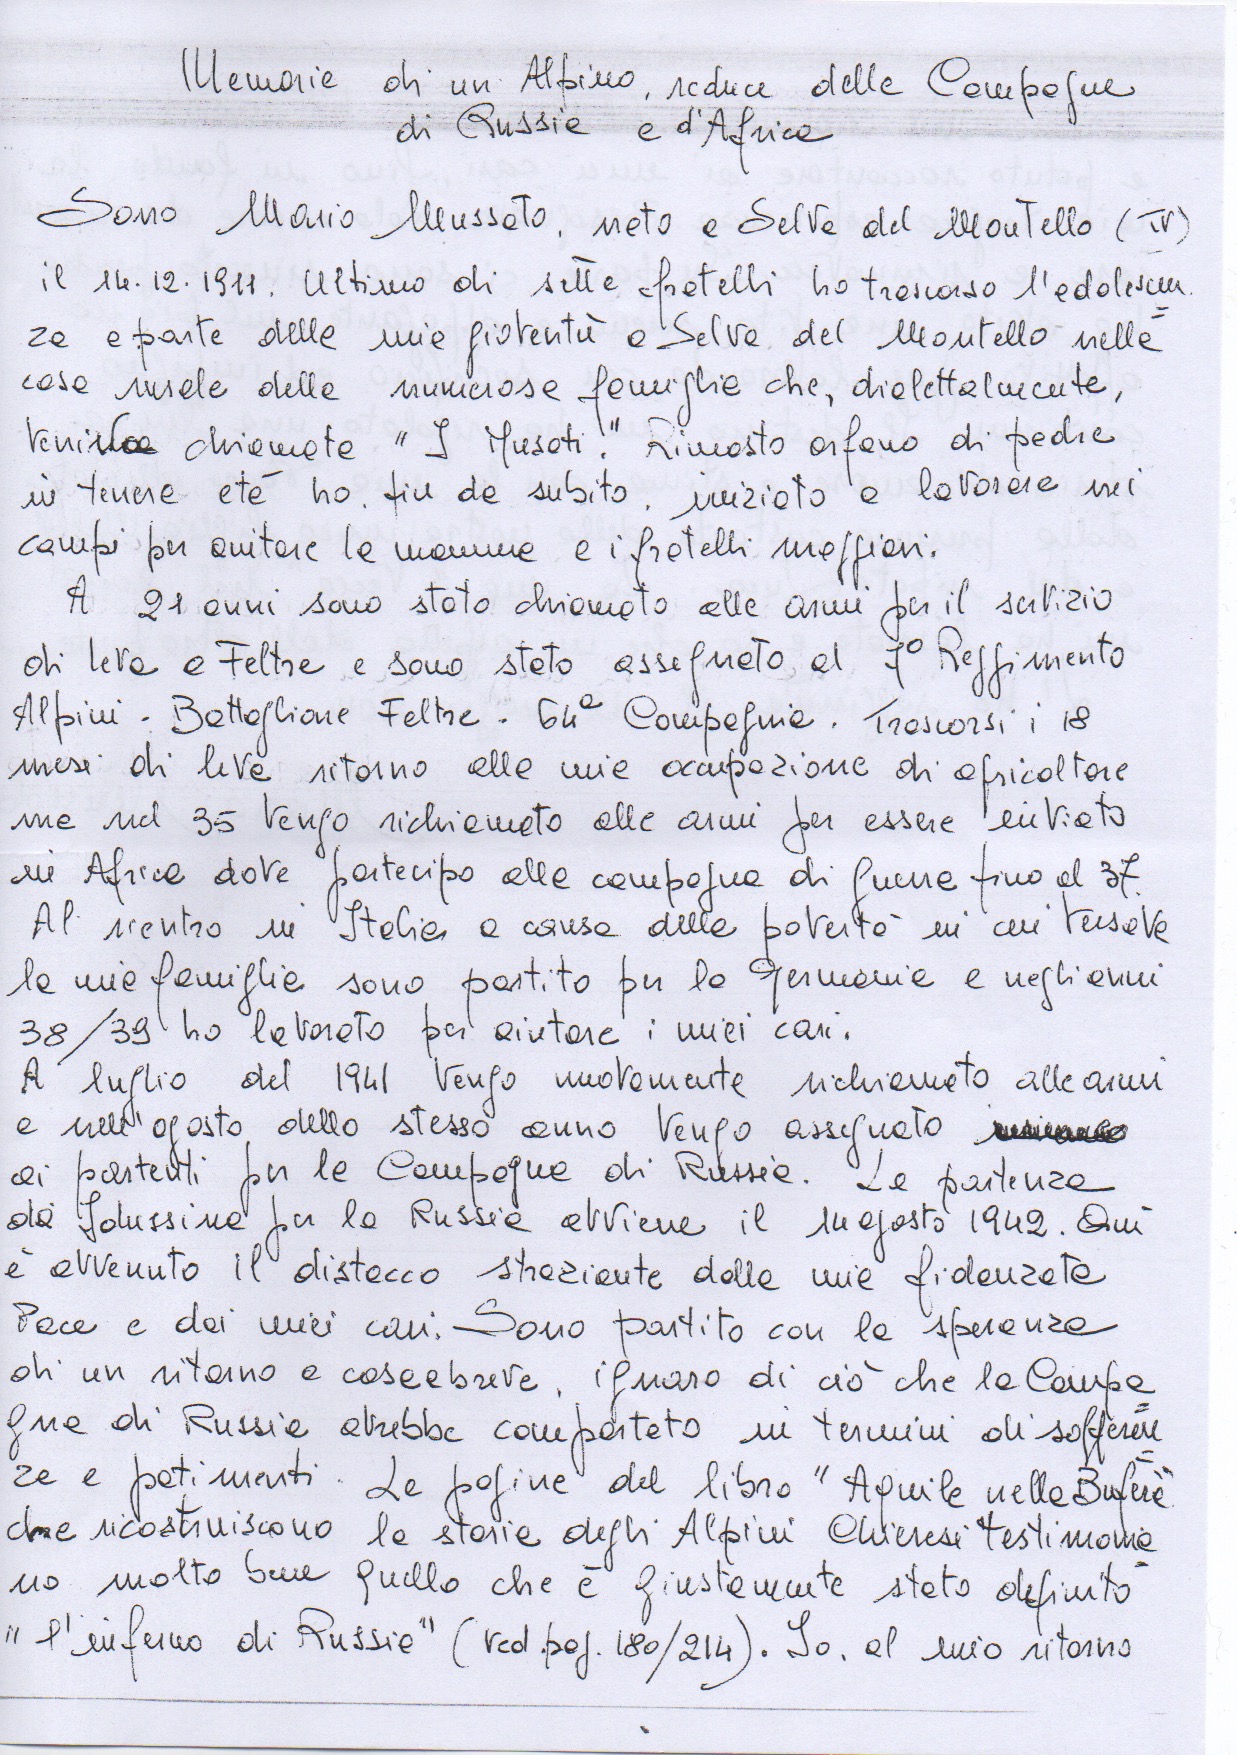 Memorie di un Alpino, reduce delle Campagne
di Russia e d'Africa
Sono Mario Mussato, nato a Selva del Montello (TV)
il 14.12.1911. Ultimo di sette fratelli ho trascorso l'adolescen=
za e parte della mia gioventù a Selva del Montello nella
casa rurale della numerosa famiglia che, dialettalmente,
veniva chiamata "I Musati". Rimasto orfano di padre
in tenera età ho, fin da subito, iniziato a lavorare nei
campi per aiutare la mamma e i fratelli maggiori.
A 21 anni sono stato chiamato alle armi per il servizio
di leva a Feltre e sono stato assegnato al 7° Reggimento
Alpini - Battaglione Feltre - 64ª Compagnia. Trascorsi i 18
mesi di leva ritorno alla mia occupazione di agricoltore
ma nel 35 vengo richiamato alle armi per essere inviato
in Africa dove partecipo alla campagna di guerra fino al 37.
Al rientro in Italia a causa della povertà in cui versava
la mia famiglia sono partito per la Germania e negli anni
38/39 ho lavorato per aiutare i miei cari.
A luglio del 1941 vengo nuovamente richiamato alle armi
e nell'agosto dello stesso anno vengo assegnato
ai partenti per la Campagna di Russia. La partenza
da per la Russia avviene il 14 agosto 1942. Qui
è avvenuto il distacco straziante dalla mia fidanzata
Pace e dai miei cari. Sono partito con la speranza
di un ritorno a casa a breve, ignaro di ciò che la Campa=
gna di Russia avrebbe comportato in termini di sofferen=
ze e patimenti. Le pagine del libro "Aquile nella Bufera"
che ricostruiscono la storia degli Alpini Chieresi testimonia=
no molto bene quello che è giustamente stato definito
"l'inferno di Russia" (ved.pag. 180/214). Io, al mio ritorno